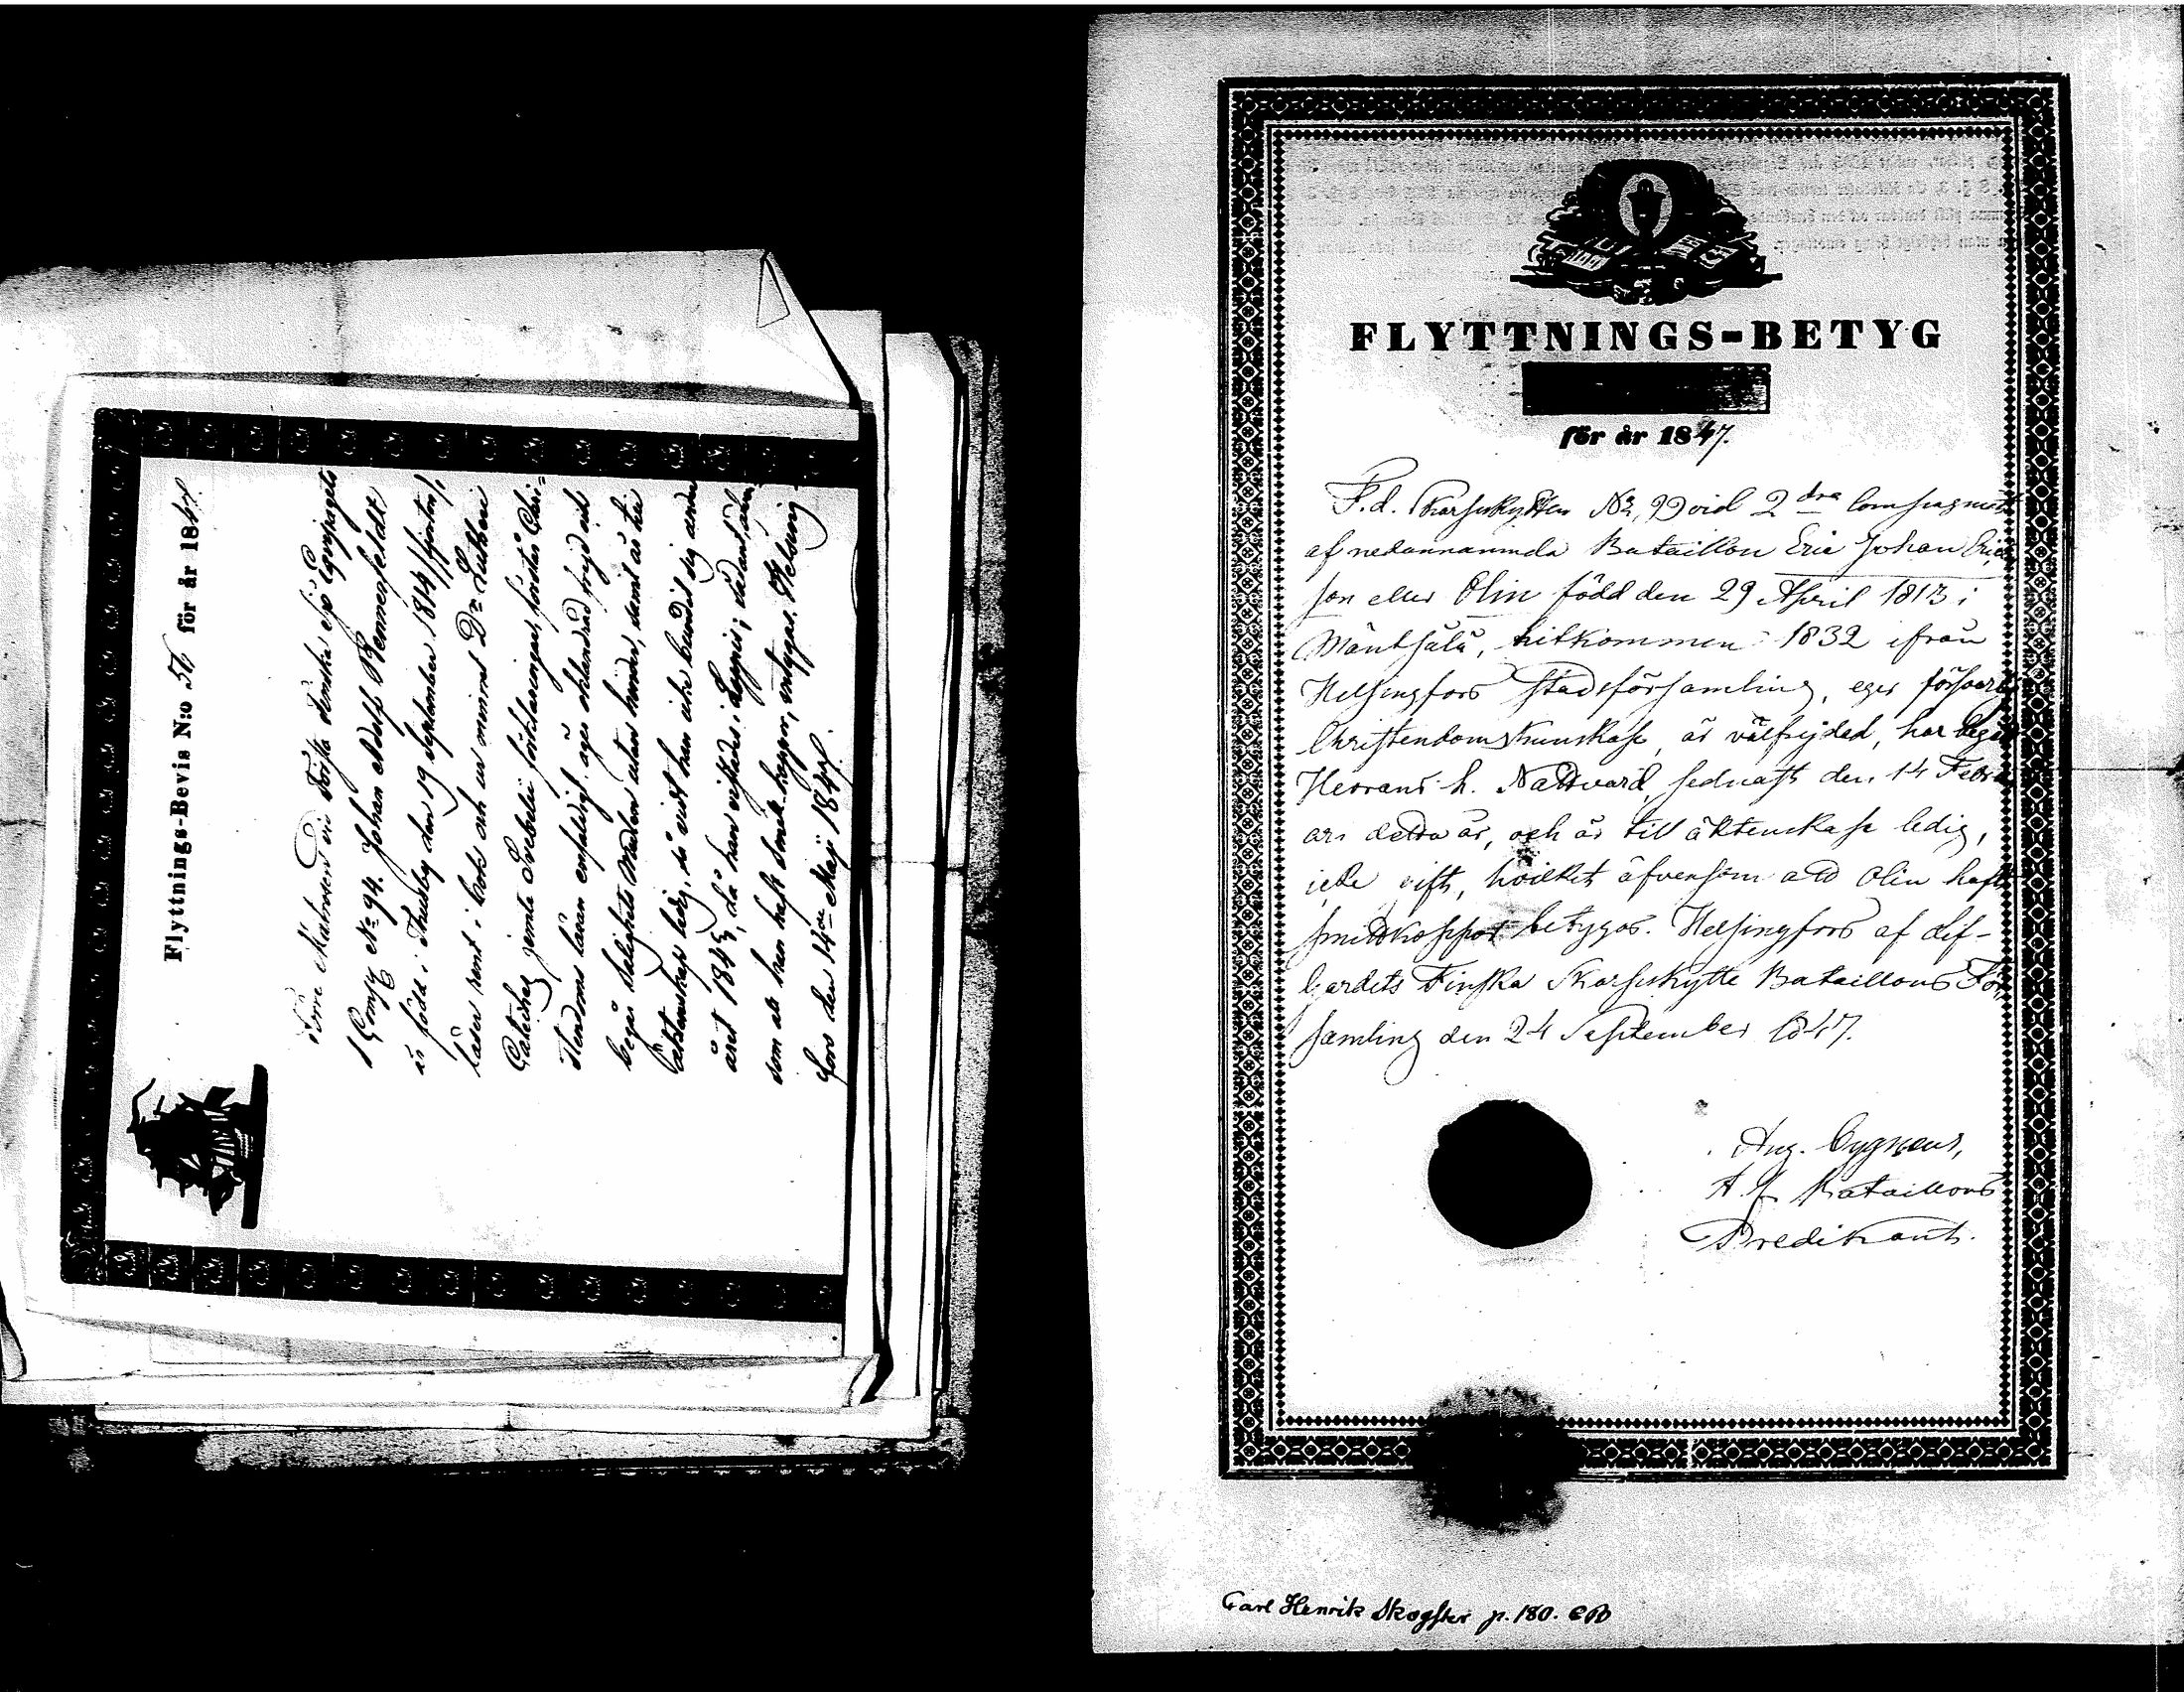 Flyttnings-Bevis N:o 56 för år 184
Förre Matrosen vid Första Finska Sjö Equipagets
1 Comp. No 94. Johan Adolf Rennerfeldt
är född i Thusby den 19 September 1814 /fjorton/,
läser rent i bok och ur minnet Dr Lutheri
Catechez jemte Svebelii förklaringar, förstår Chri-
stendoms läran enfaldigt, äger oklandrad frejd och
begår Salighets Medlen utan hinder, samt är till
äktenskap ledig, så vidt han icke bundit sig
året 184 då han vistades i
som att han haft Smitt-koppor, intygas. Helsing-
fors den 14de Maji 184
FLYTTNINGS-BETYG
för år 1847.
F.d. Skarpskytten No 99 vid 2dra Compagniet
af nedannämnda Bataillon Eric Johan Erics
son eller Olin född den 29 April 1813 i
Mäntsälä, hitkommen 1832 ifrån
Helsingfors Stadsförsamling, eger försvarlig
Christendomskunskap, är välfrejdad, har begått
Herrans h. Nattvard sednast den 14 Febru
ari detta år, och är till äktenskap ledig,
icke gift, hvilket äfvensom att Olin haft
smittkoppor betygas. Helsingfors af Lif-
Gardets Finska Skarpskytte Bataillons För
samling den 24 September 1847.
Aug. Cygnæus,
t.f. Bataillons
Predikant.
Carl Henrik Skogster p. 180.